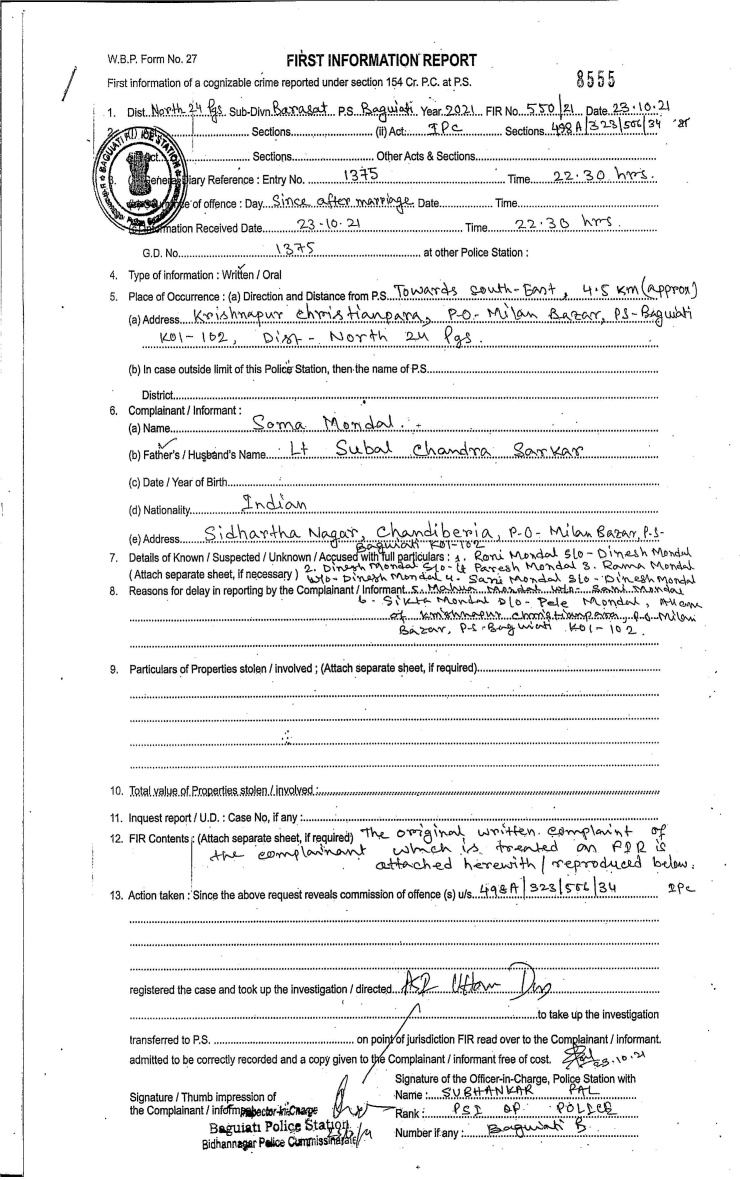 W.B.P. Form No. 27
FIRST INFORMATION REPORT
First information of a cognizable crime reported under section 154 Cr. P.C. at P.S. 8555
1. Dist. North 24 Pgs. Sub-Divn. Barasat P.S. Baguiati Year 2021 FIR No. 550/21 Date 23.10.21
2. Sections (ii) Act: IPC Sections 498A/323/506/34
Act Sections Other Acts & Sections
3. General Diary Reference : Entry No. 1375 Time 22.30 hrs.
of offence : Day Since after marriage Date Time
Information Received Date 23-10-21 Time 22.30 hrs.
G.D. No. 1375 at other Police Station :
4. Type of information : Written / Oral
5. Place of Occurrence : (a) Direction and Distance from P.S. Towards south-East, 4.5 KM (approx)
(a) Address Krishnapur Christianpara, P.O- Milan Bazar, PS-Baguiati
Kol-102, Dist - North 24 Pgs.
(b) In case outside limit of this Police Station, then the name of P.S.
District
6. Complainant / Informant :
(a) Name Soma Mondal.
(b) Father's / Husband's Name Lt Subal Chandra Sarkar
(c) Date / Year of Birth
(d) Nationality Indian
(e) Address Sidhartha Nagar, Chandiberia, P.O- Milan Bazar, P.S-
Baguiati Kol-102
7. Details of Known / Suspected / Unknown / Accused with full particulars : 1. Roni Mondal S/o - Dinesh Mondal
2. Dinesh Mondal S/o - Lt Paresh Mondal 3. Rama Mondal
(Attach separate sheet, if necessary) W/o - Dinesh Mondal 4. Sani Mondal S/o - Dinesh Mondal
8. Reasons for delay in reporting by the Complainant / Informant 5. Mahua Mondal W/o- Sani Mondal
6- Sikta Mondal D/o - Pele Mondal, All are
of Krishnapur Christianpara, P.O- Milan
Bazar, P.S-Baguiati Kol-102.
9. Particulars of Properties stolen / involved ; (Attach separate sheet, if required)
10. Total value of Properties stolen / involved :
11. Inquest report / U.D. : Case No, if any :
12. FIR Contents : (Attach separate sheet, if required) The original written complaint of
the complainant which is treated an FIR is
attached herewith / reproduced below.
13. Action taken : Since the above request reveals commission of offence (s) u/s. 498A/323/506/34 IPC
registered the case and took up the investigation / directed ASI Uttam Das
to take up the investigation
transferred to P.S. on point of jurisdiction FIR read over to the Complainant / informant.
admitted to be correctly recorded and a copy given to the Complainant / informant free of cost. 23.10.21
Signature of the Officer-in-Charge, Police Station with
Signature / Thumb impression of Name : SUBHANKAR PAL
the Complainant / informant Inspector-in-Charge Rank : PSI OF POLICE
Baguiati Police Station
Bidhannagar Police Commissinarate Number if any : Baguiati B